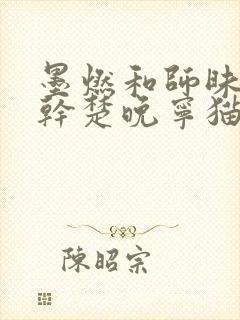 墨燃和師昧
幹楚晚寧猫
陳昭宗